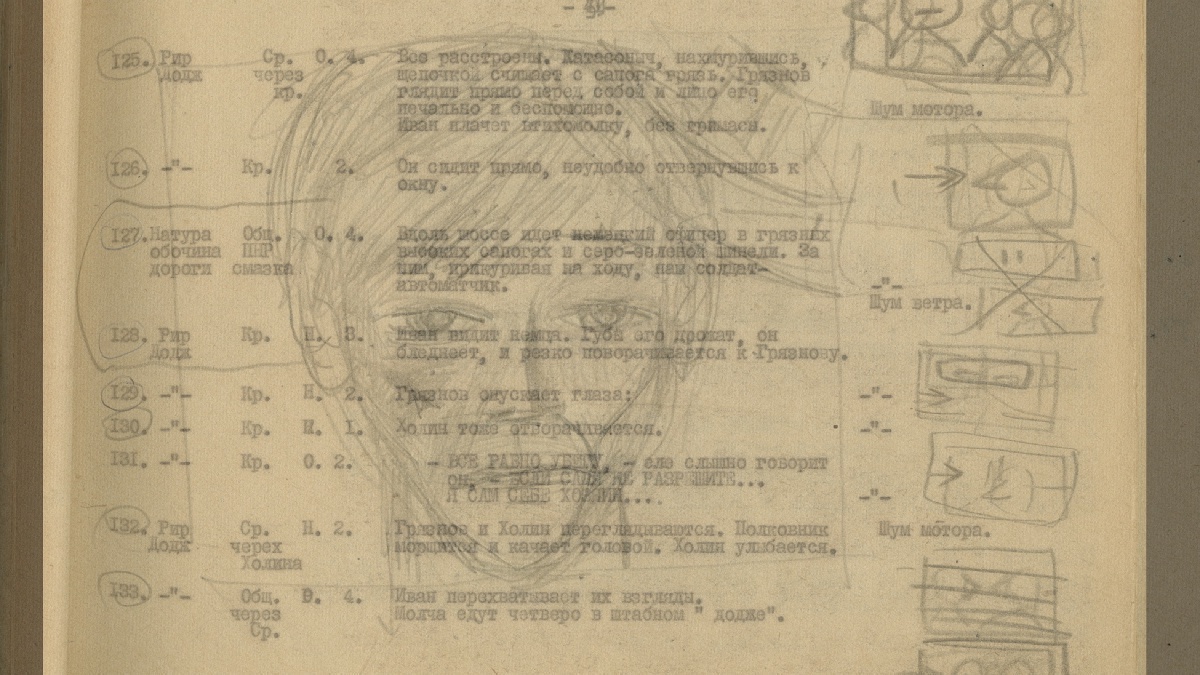 125. Рир Ср. О. 4. Все расстроены. Катасоныч, нахмурившись,
Додж через щепочкой счищает с сапога грязь. Грязнов
кр. глядит прямо перед собой и лицо его
печально и беспомощно. Шум мотора.
Иван плачет втихомолку, без гримасы.
126. -"- Кр. 2. Он сидит прямо, неудобно отвернувшись к
окну.
127. Натура Общ. О. 4. Вдоль шоссе идет немецкий офицер в грязных
обочина ПНР высоких сапогах и серо-зеленой шинели. За
дороги смазка ним, прикуривая на ходу, наш солдат-
автоматчик. -"-
Шум ветра.
128. Рир Кр. Н. 3. Иван видит немца. Губы его дрожат, он
Додж бледнеет, и резко поворачивается к Грязнову.
129. -"- Кр. Н. 2. Грязнов опускает глаза: -"-
130. -"- Кр. Н. 1. Холин тоже отворачивается. -"-
131. -"- Кр. О. 2. - ВСЕ РАВНО УБЕГУ, - еле слышно говорит
он, - ЕСЛИ САМИ НЕ РАЗРЕШИТЕ...
Я САМ СЕБЕ ХОЗЯИН.... -"-
132. Рир Ср. Н. 2. Грязнов и Холин переглядываются. Полковник Шум мотора.
Додж черех морщится и качает головой. Холин улыбается.
Холина
133. -"- Общ. 4. Иван перехватывает их взгляды.
через Молча едут четверо в штабном " додже".
Ср.